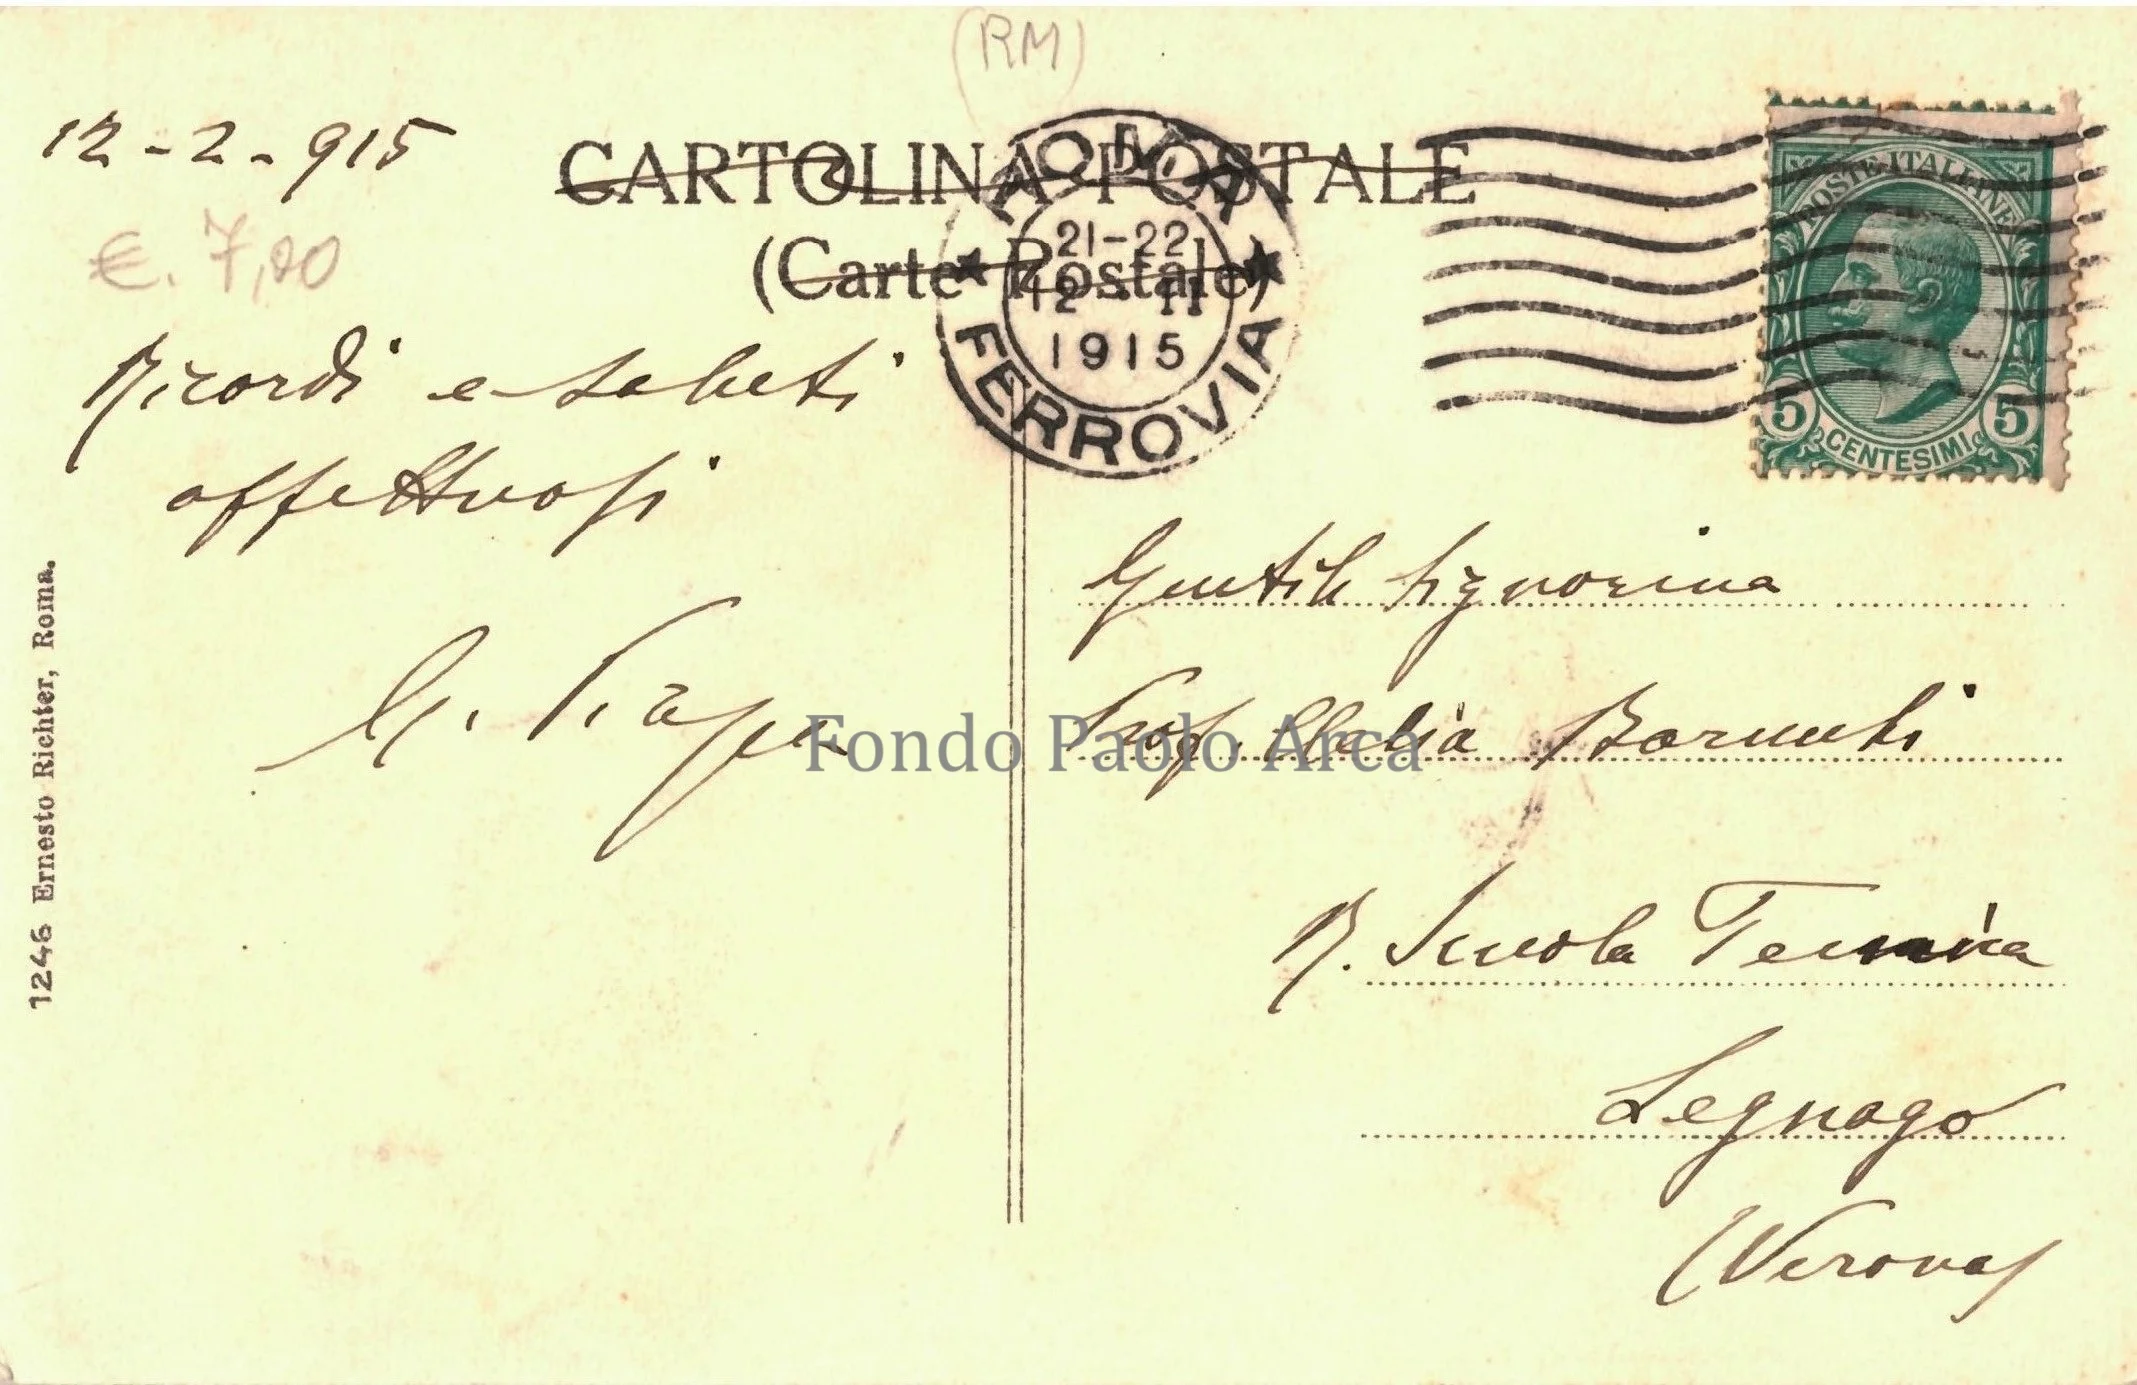 (RM)
12-2-915
CARTOLINA POSTALE
(Carte Postale)
€. 7,00
ROMA
21-22
12 II
1915
FERROVIA
POSTE ITALIANE
5 5
CENTESIMI
Ricordi e saluti
affettuosi
G.
Gentile Signorina
Prof. Clelia
R. Scuola Tecnica
Legnago
(Verona)
1246 Ernesto Richter, Roma.
Fondo Paolo Arca